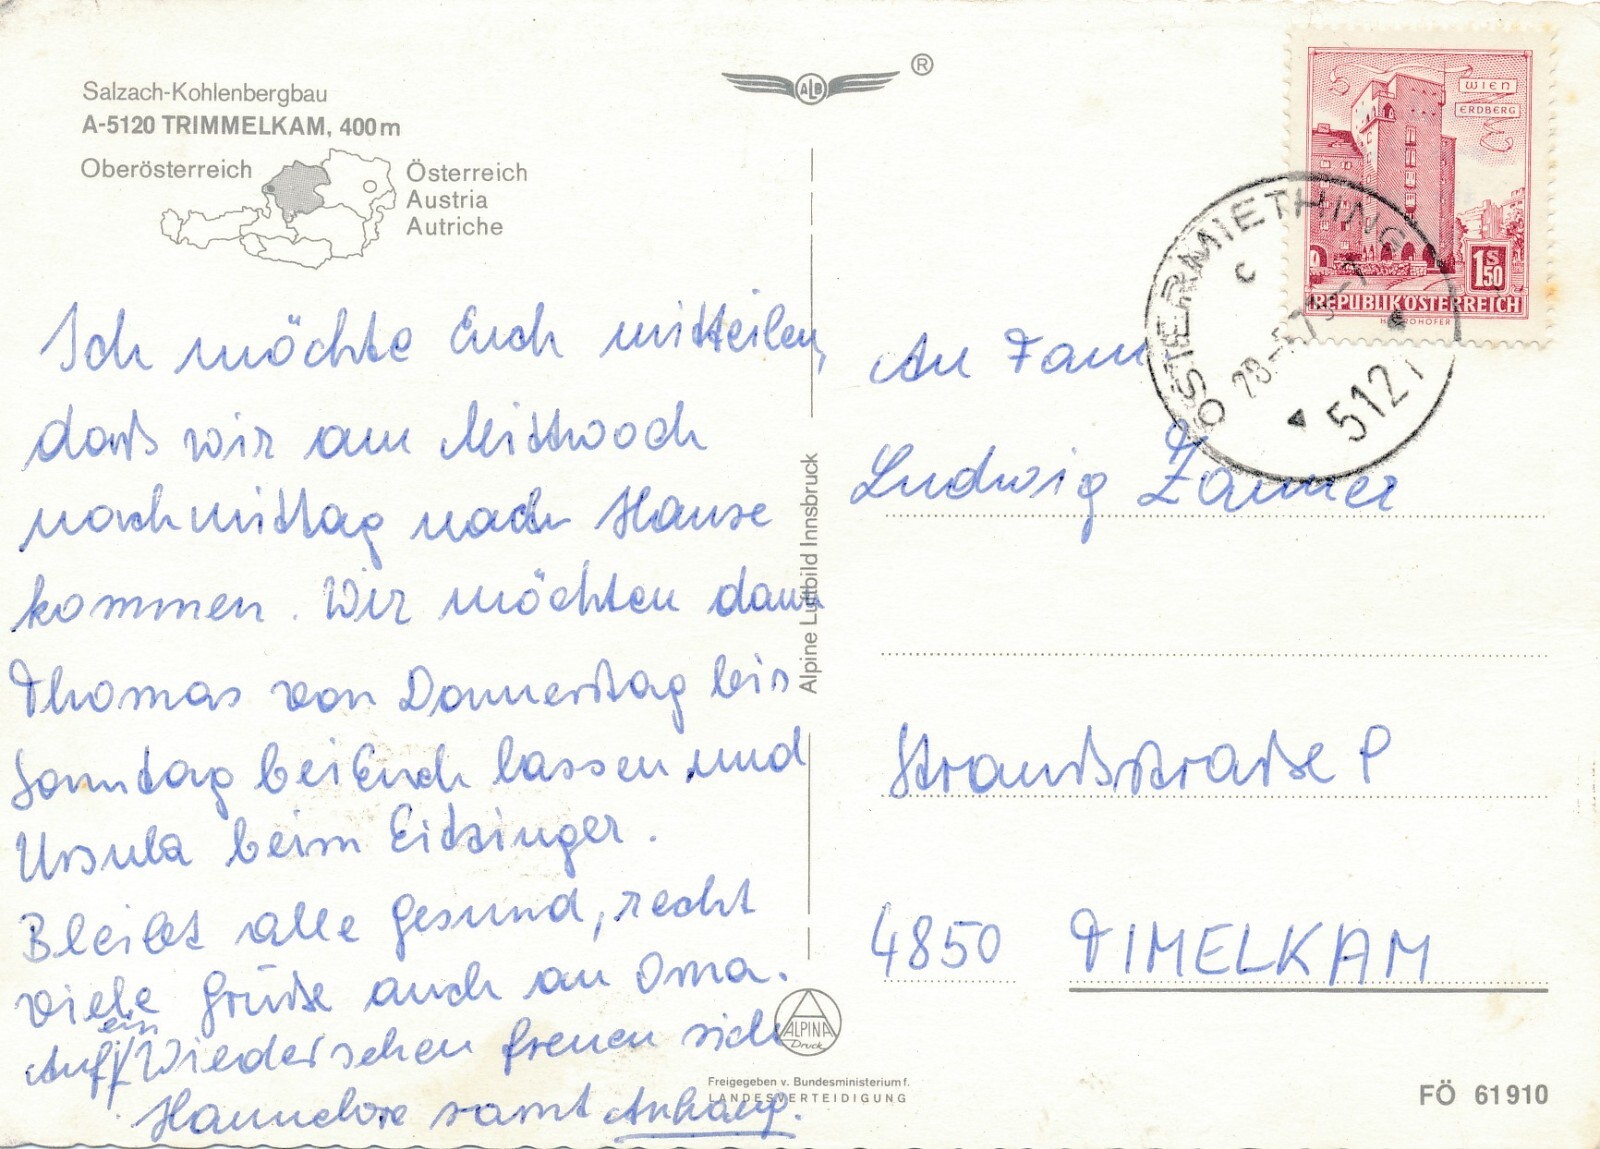 Salzach-Kohlenbergbau
A-5120 TRIMMELKAM, 400m
Oberösterreich
Österreich
Austria
Autriche
Ich möchte Euch mitteilen,
daß wir am Mittwoch
nachmittag nach Hause
kommen. Wir möchten dann
Thomas von Donnerstag bis
Sonntag bei Euch lassen und
Ursula beim Eitzinger.
Bleibt alle gesund, recht
viele Grüße auch an Oma.
Auf ein Wiedersehen freuen sich
Hannelore samt Anhang.
ALB
®
Alpine Luftbild Innsbruck
ALPINA
Druck
Freigegeben v. Bundesministerium f.
LANDESVERTEIDIGUNG
WIEN
ERDBERG
1 S 50
REPUBLIK ÖSTERREICH
OSTERMIETHING
c
5121
An Fam
Ludwig
4850 TIMELKAM
FÖ 61910